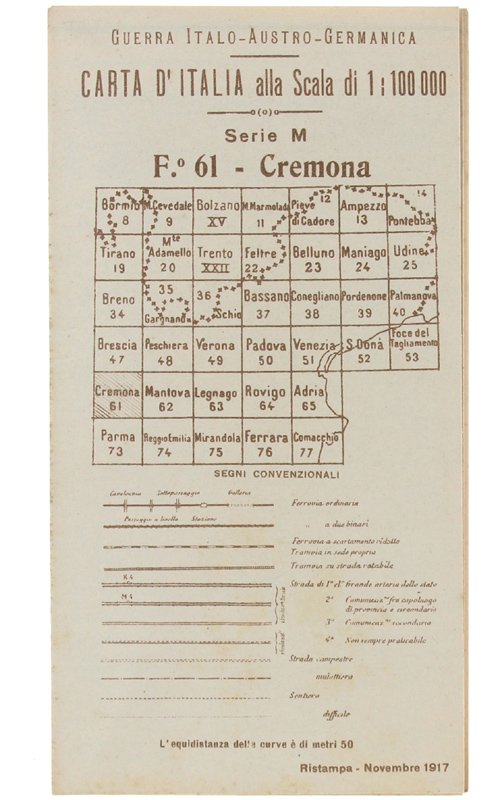 GUERRA ITALO-AUSTRO-GERMANICA
CARTA D'ITALIA alla Scala di 1:100 000
Serie M
F.º 61 - Cremona
Bormio 8
M.Cevedale 9
Bolzano XV
M.Marmolada 11
Pieve di Cadore 12
Ampezzo 13
Pontebba 14
Tirano 19
M.te Adamello 20
Trento XXII
Feltre 22
Belluno 23
Maniago 24
Udine 25
Breno 34
35 Gargnano
36 Schio
Bassano 37
Conegliano 38
Pordenone 39
Palmanova 40
Brescia 47
Peschiera 48
Verona 49
Padova 50
Venezia 51
S.Donà 52
Foce del Tagliamento 53
Cremona 61
Mantova 62
Legnago 63
Rovigo 64
Adria 65
Parma 73
Reggio Emilia 74
Mirandola 75
Ferrara 76
Comacchio 77
SEGNI CONVENZIONALI
Cavalcavia Sottopassaggio Galleria
Ferrovia ordinaria
Passaggio a livello Stazione
" a due binari
Ferrovia a scartamento ridotto
Tramvia in sede propria
Tramvia su strada rotabile
Strada di 1ª cl.e Grande arteria dello stato
2ª Comunicaz.ne fra capoluogo
di provincia e circondario
3ª Comunicaz.ne secondaria
4ª Non sempre praticabile
Strada campestre
mulattiera
Sentiero
difficile
L'equidistanza delle curve è di metri 50
Ristampa - Novembre 1917